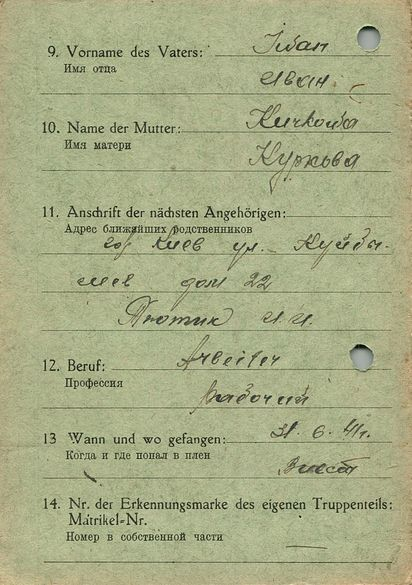 9. Vorname des Vaters: Iwan
Имя отца
Иван
10. Name der Mutter: Kurkowa
Имя матери
Куркова
11. Anschrift der nächsten Angehörigen:
Адрес ближайших родственников
гор Киев ул. Куйбы-
шев дом 22
И.И.
12. Beruf: Arbeiter
Профессия
Рабочий
13 Wann und wo gefangen: 31. 6. 41 г.
Когда и где попал в плен
14. Nr. der Erkennungsmarke des eigenen Truppenteils:
Matrikel-Nr.
Номер в собственной части —